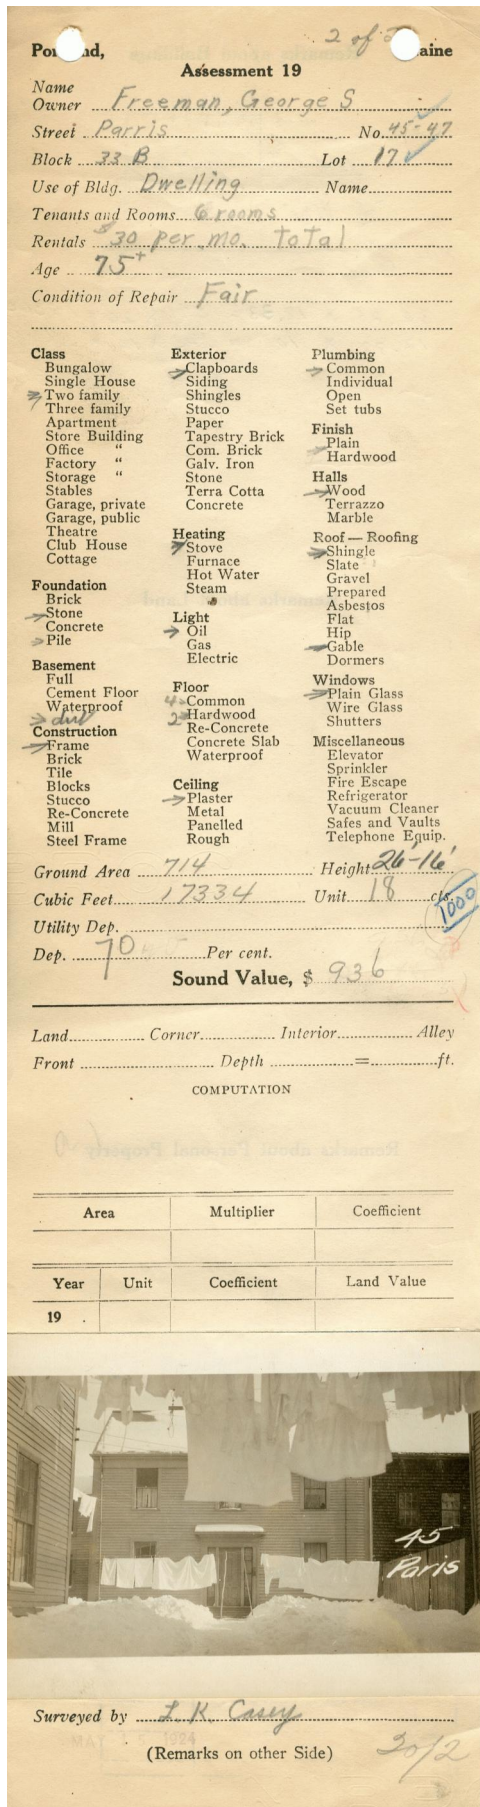 2 of
Portland, Maine
Assessment 19
Name
Owner Freeman, George S
Street Parris No. 45-47
Block 33 B Lot 17
Use of Bldg. Dwelling Name
Tenants and Rooms 6 rooms
Rentals $30 per mo. Total
Age 75+
Condition of Repair Fair
Class
Bungalow
Single House
Two family
Three family
Apartment
Store Building
Office "
Factory "
Storage "
Stables
Garage, private
Garage, public
Theatre
Club House
Cottage
Foundation
Brick
Stone
Concrete
Pile
Basement
Full
Cement Floor
Waterproof
dirt
Construction
Frame
Brick
Tile
Blocks
Stucco
Re-Concrete
Mill
Steel Frame
Exterior
Clapboards
Siding
Shingles
Stucco
Paper
Tapestry Brick
Com. Brick
Galv. Iron
Stone
Terra Cotta
Concrete
Heating
Stove
Furnace
Hot Water
Steam
Light
Oil
Gas
Electric
Floor
4 Common
2 Hardwood
Re-Concrete
Concrete Slab
Waterproof
Ceiling
Plaster
Metal
Panelled
Rough
Plumbing
Common
Individual
Open
Set tubs
Finish
Plain
Hardwood
Halls
Wood
Terrazzo
Marble
Roof — Roofing
Shingle
Slate
Gravel
Prepared
Asbestos
Flat
Hip
Gable
Dormers
Windows
Plain Glass
Wire Glass
Shutters
Miscellaneous
Elevator
Sprinkler
Fire Escape
Refrigerator
Vacuum Cleaner
Safes and Vaults
Telephone Equip.
Ground Area 714 Height 26'-16'
Cubic Feet 17334 Unit 18 cts.
1000
Utility Dep.
Dep. 70 Per cent.
Sound Value, $ 936
Land Corner Interior Alley
Front Depth = ft.
COMPUTATION
Remarks about Personal Property
Area Multiplier Coefficient
Year Unit Coefficient Land Value
19
45
Paris
Surveyed by L. K. Casey
MAY 15 1924
(Remarks on other Side)